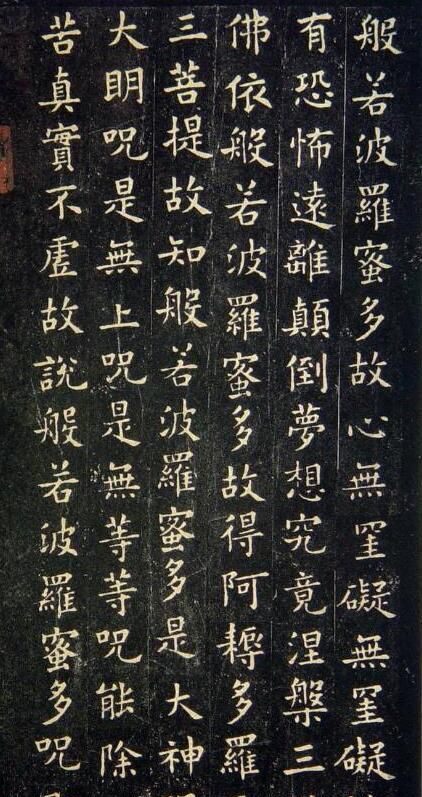 般若波羅蜜多故心無罣礙無罣礙
有恐怖遠離顛倒夢想究竟涅槃三
佛依般若波羅蜜多故得阿耨多羅
三菩提故知般若波羅蜜多是大神
大明咒是無上咒是無等等咒能除
苦真實不虛故說般若波羅蜜多咒